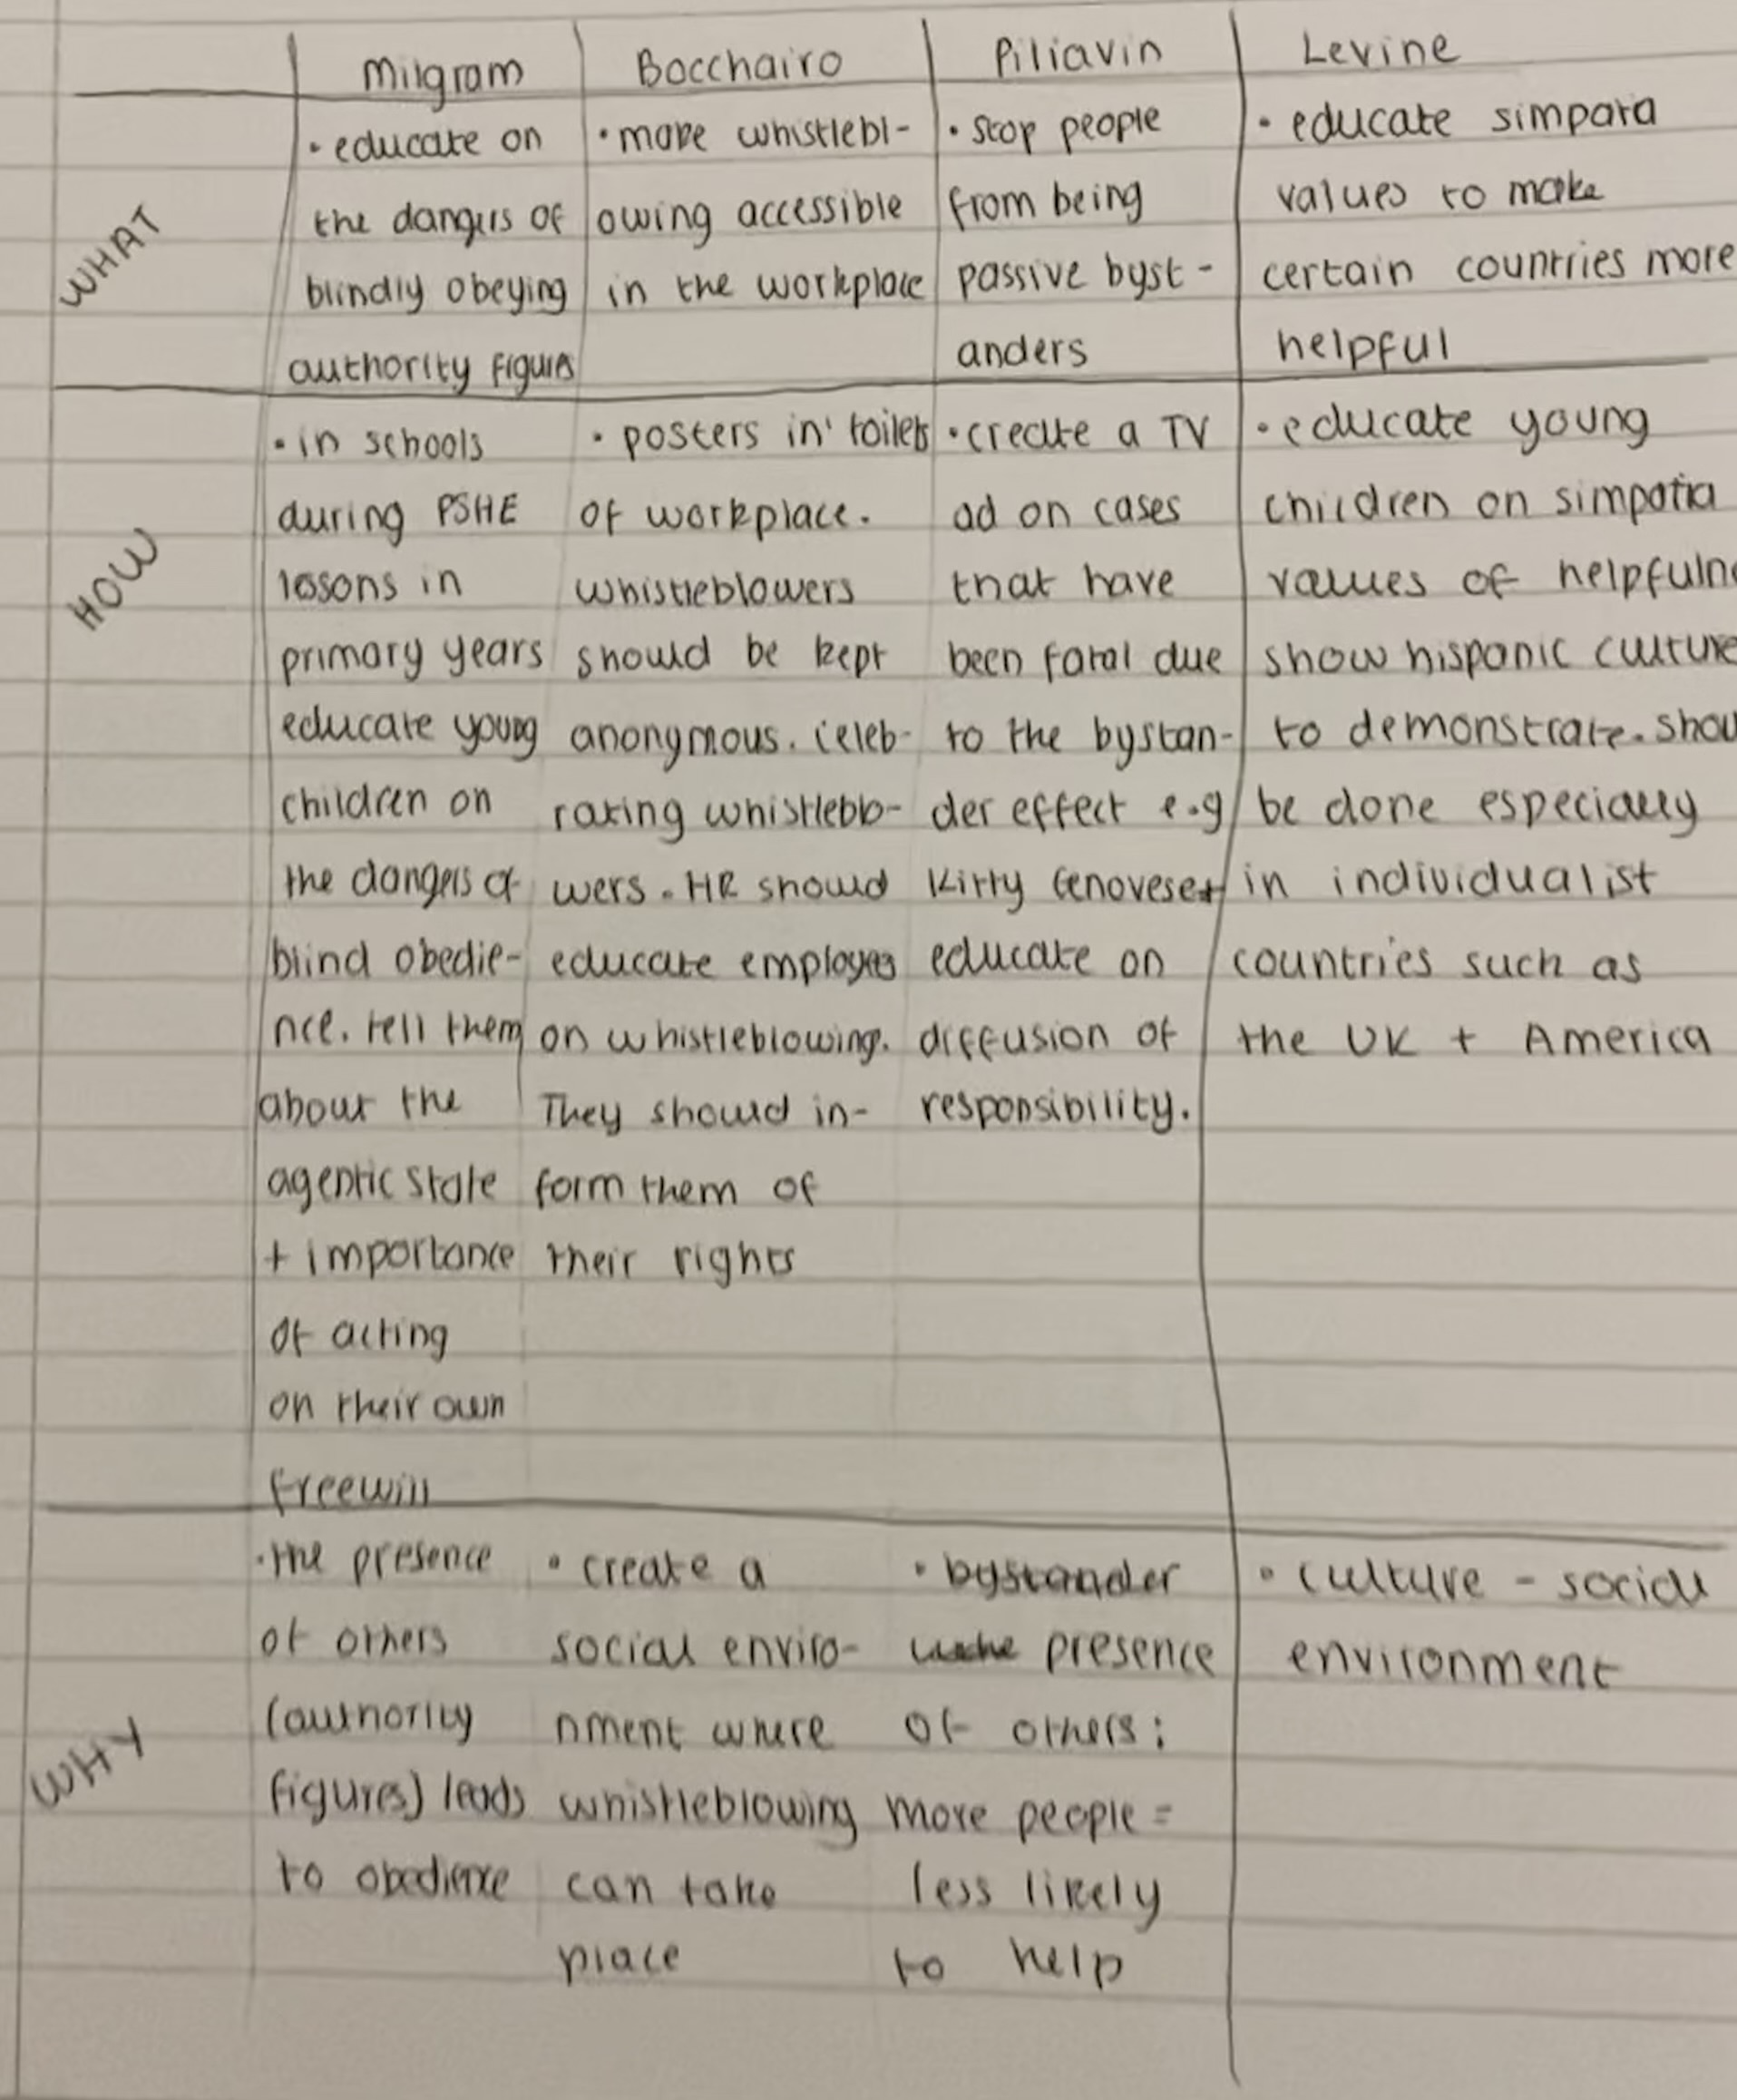 Milgram
Bocchairo
Piliavin
Levine
WHAT
• educate on
the dangers of
blindly obeying
authority figures
• more whistlebl-
owing accessible
in the workplace
• stop people
from being
passive byst-
anders
• educate simpara
values to make
certain countries more
helpful
HOW
• in schools
during PSHE
lessons in
primary years
educate young
children on
the dangers of
blind obedie-
nce. tell them
about the
agentic state
+ importance
of acting
on their own
freewill
• posters in toilets
of workplace.
whistleblowers
should be kept
anonymous. celeb-
rating whistleblo-
wers. HR should
educate employees
on whistleblowing.
They should in-
form them of
their rights
• create a TV
ad on cases
that have
been fatal due
to the bystan-
der effect e.g
Kitty Genovese +
educate on
diffusion of
responsibility.
• educate young
children on simpatia
values of helpfulne
show hispanic culture
to demonstrate. shou
be done especially
in individualist
countries such as
the UK + America
WHY
• the presence
of others
(authority
figures) leads
to obedience
• create a
social enviro-
nment where
whistleblowing
can take
place
• bystander
presence
of others:
more people =
less likely
to help
• culture - social
environment